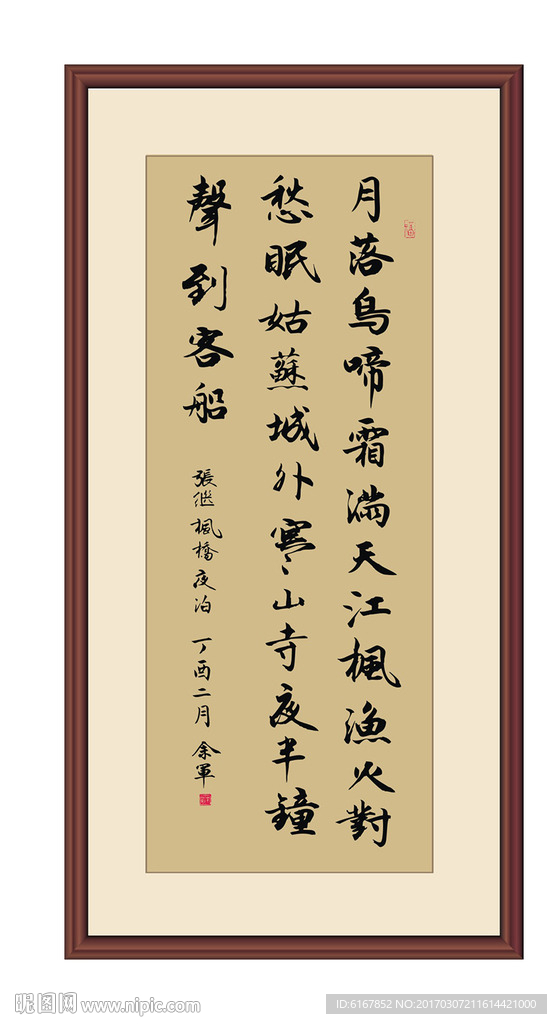 月落烏啼霜滿天江楓漁火對
愁眠姑蘇城外寒山寺夜半鐘
聲到客船
張继楓橋夜泊 丁酉二月 余軍
昵图网 www.nipic.com
ID:6167852 NO:20170307211614421000